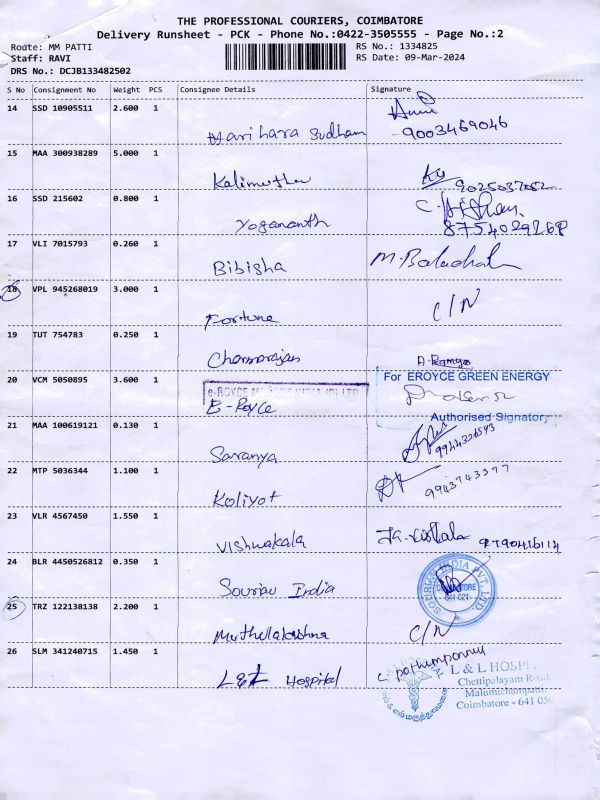 THE PROFESSIONAL COURIERS, COIMBATORE
Delivery Runsheet - PCK - Phone No.:0422-3505555 - Page No.:2
Route: MM PATTI
Staff: RAVI
DRS No.: DCJB133482502
RS No.: 1334825
RS Date: 09-Mar-2024
S No Consignment No Weight PCS Consignee Details Signature
14 SSD 10905511 2.600 1
Harihara Sudham 9003469046
15 MAA 300938289 5.000 1
Kalimuthu 9025037052
16 SSD 215602 0.800 1
Yogananth 8754029268
17 VLI 7015793 0.260 1
Bibisha
18 VPL 945268019 3.000 1
Fortune C/N
19 TUT 754783 0.250 1
A. Ramya
20 VCM 5050895 3.600 1
E-Royce
For EROYCE GREEN ENERGY
Authorised Signatory
21 MAA 100619121 0.130 1
Saranya 9944326543
22 MTP 5036344 1.100 1
Koliyot 9943743377
23 VLR 4567450 1.550 1
Vishwakala
24 BLR 4450526812 0.350 1
Sourav India
INDIA PVT. LTD.
641 021
25 TRZ 122138138 2.200 1
C/N
26 SLM 341240715 1.450 1
L&L Hospital
L & L HOSPI
Chettipalayam Road
Malumichampatti
Coimbatore - 641 050